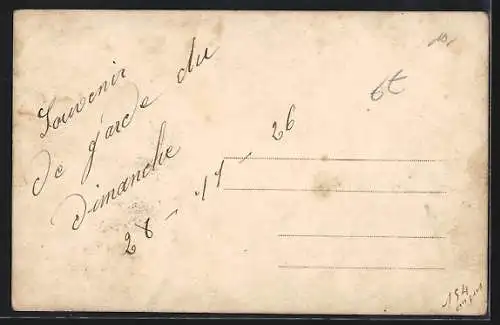 Souvenir
de garde du
Dimanche
28 - 11 - 26
6t
154